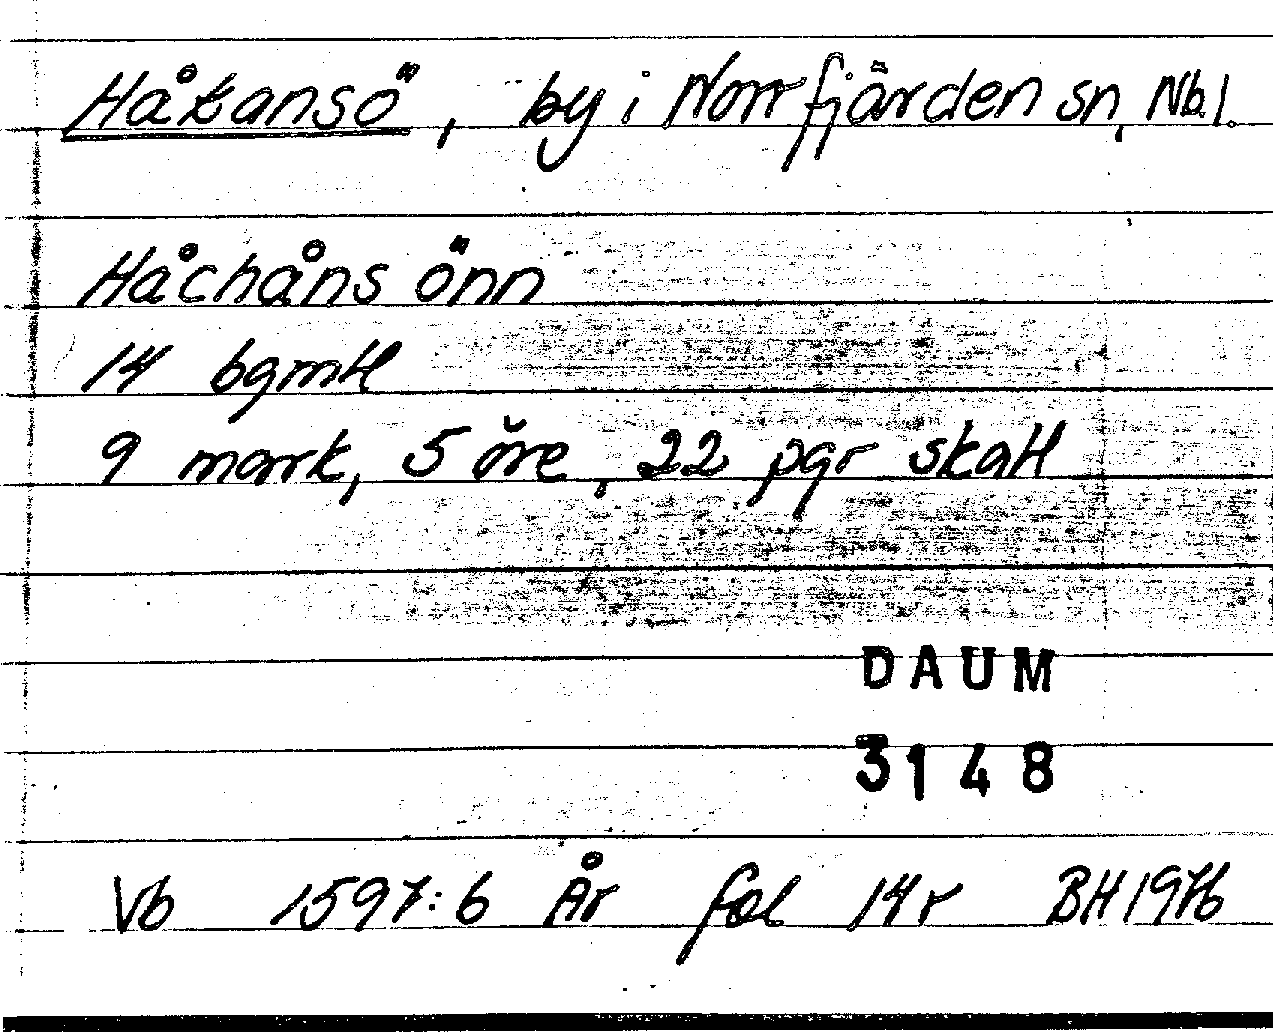 Håkansö, by i Norrfjärden sn, Nb.l.
Håchåns önn
14 bgmtl
9 mark, 5 öre, 22 pgr skatt
DAUM
3148
Vb 1597:6 År fol 14r BH 1976